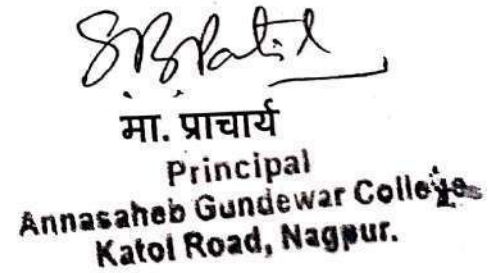 SBPatil
मा. प्राचार्य
Principal
Annasaheb Gundewar College
Katol Road, Nagpur.